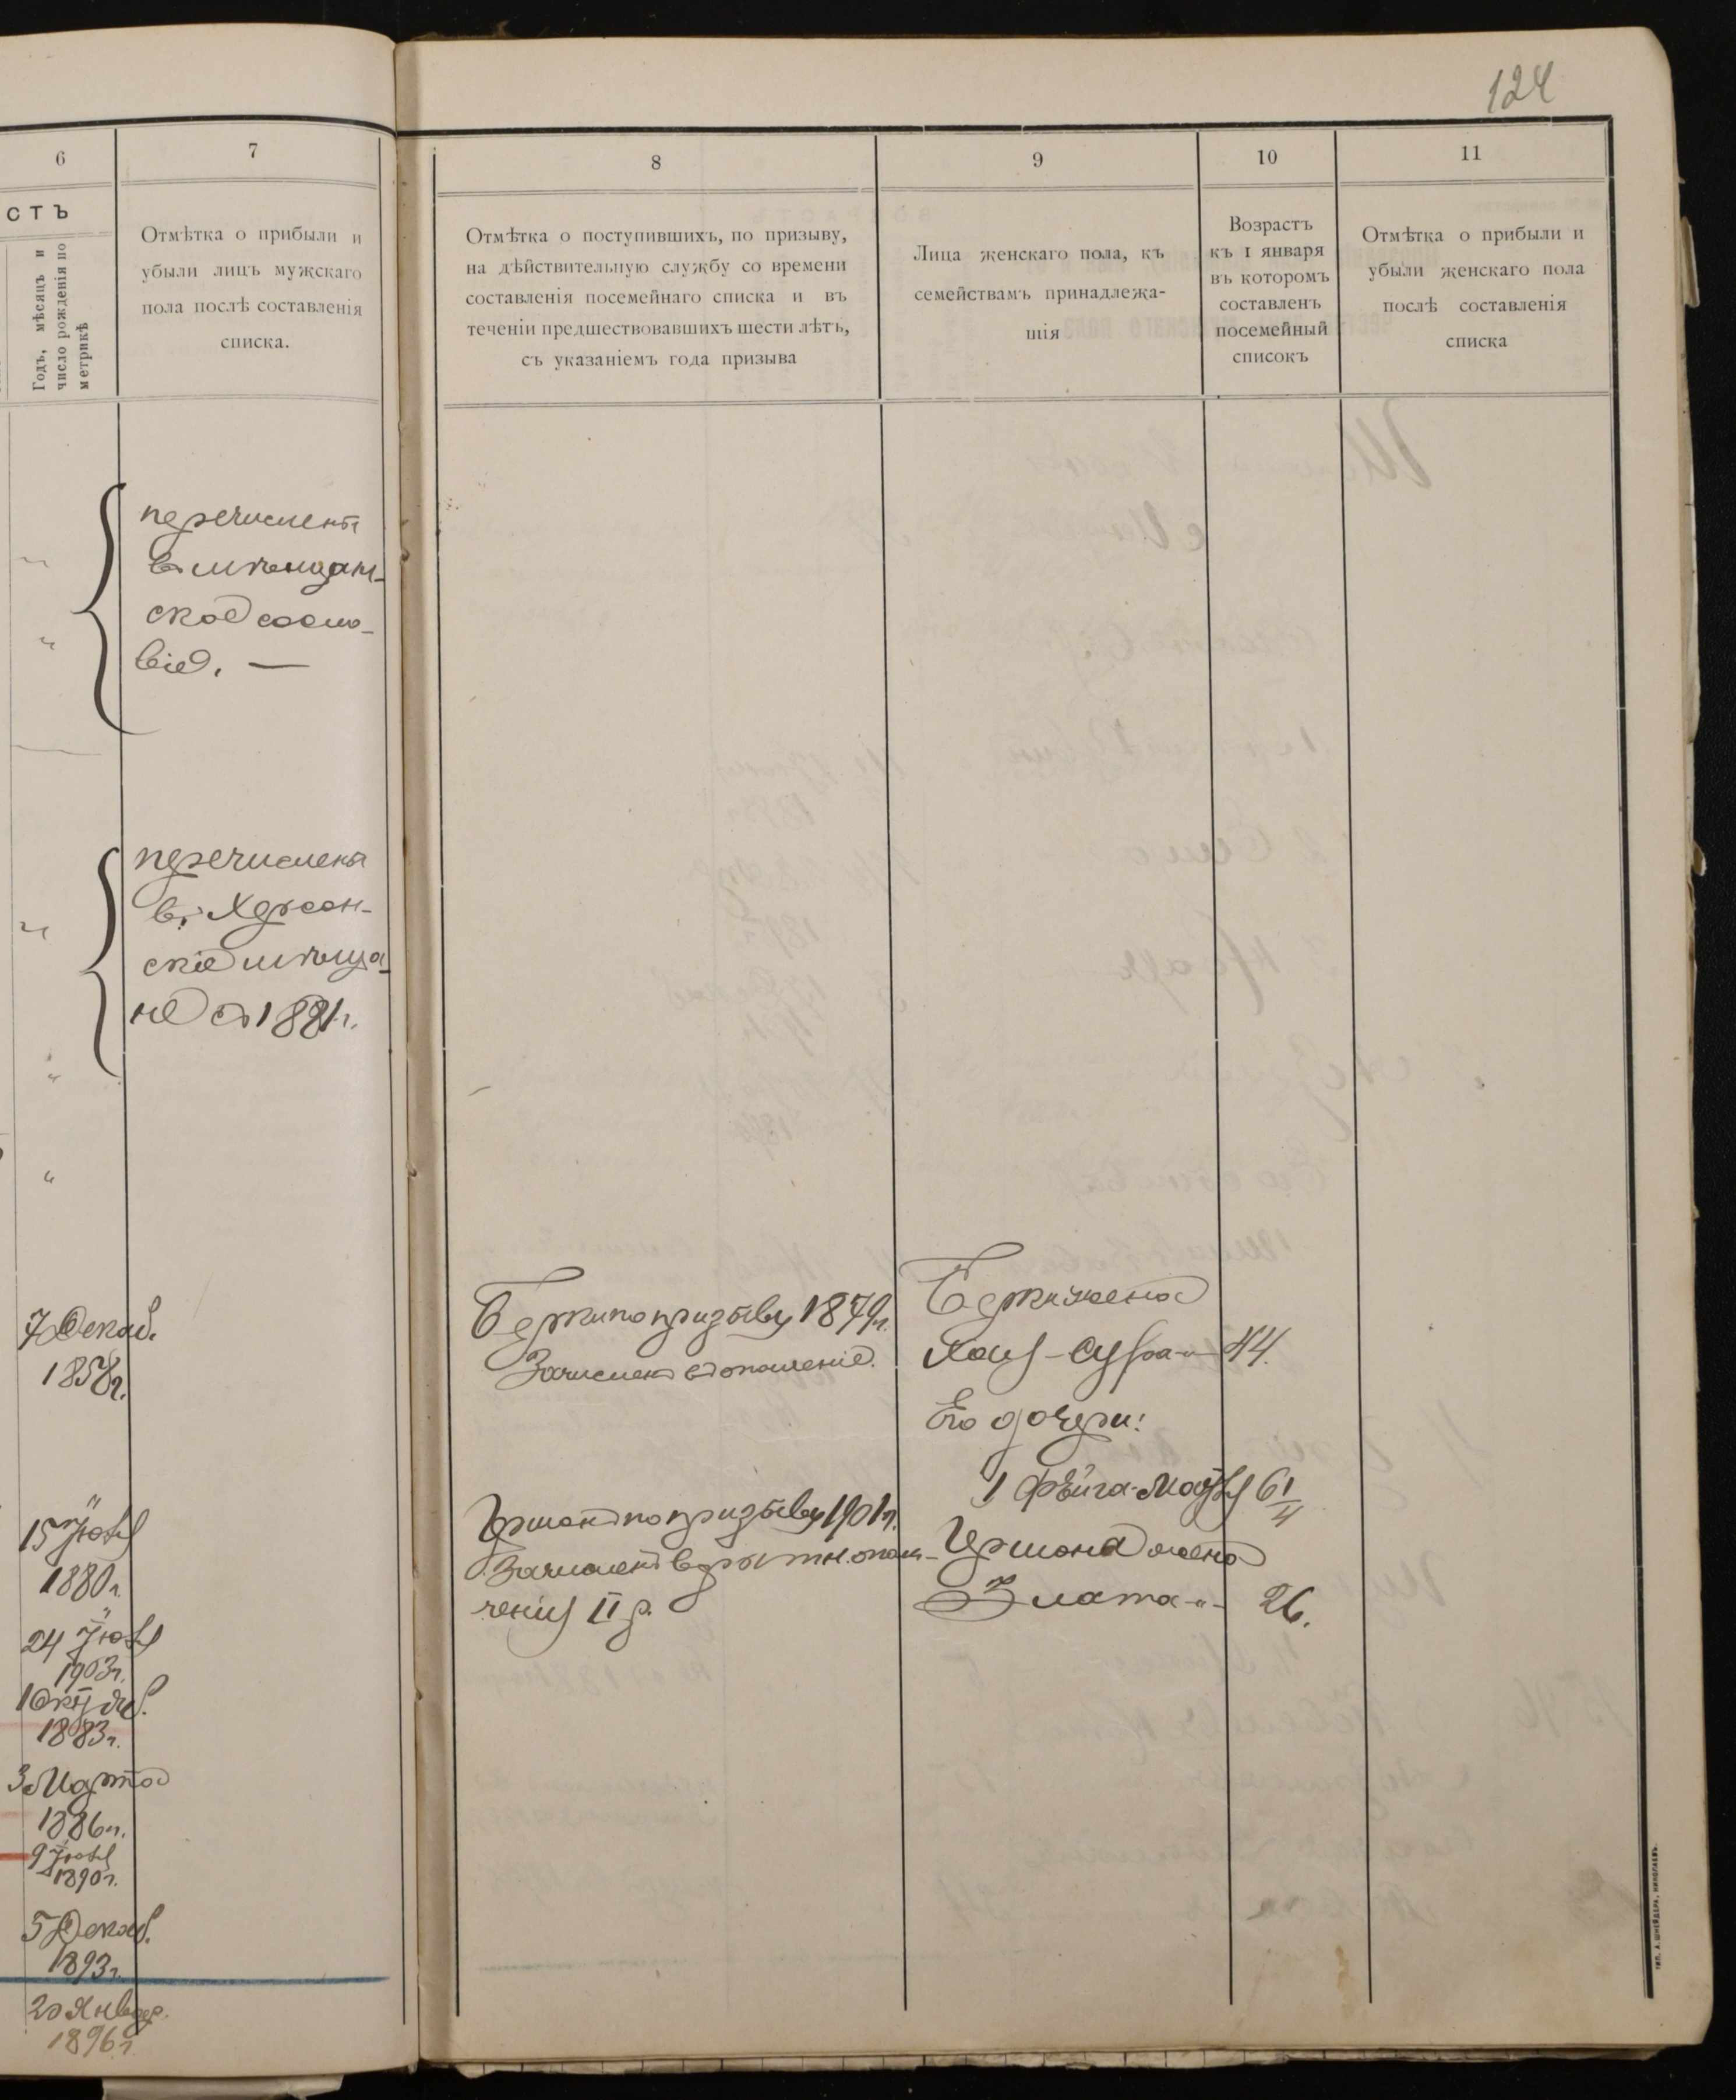 124
6
7
8
9
10
11
СТЪ
Годъ, мѣсяцъ и
число рожденія по
метрикѣ
Отмѣтка о прибыли и
убыли лицъ мужскаго
пола послѣ составленія
списка.
Отмѣтка о поступившихъ, по призыву,
на дѣйствительную службу со времени
составленія посемейнаго списка и въ
теченіи предшествовавшихъ шести лѣтъ,
съ указаніемъ года призыва
Лица женскаго пола, къ
семействамъ принадлежа-
щія
Возрастъ
къ 1 января
въ которомъ
составленъ
посемейный
списокъ
Отмѣтка о прибыли и
убыли женскаго пола
послѣ составленія
списка
перечислены
въ мѣщан-
ское сосло-
віе. —
перечислены
въ Херсон-
скіе мѣща-
не съ 1881 г.
7 Декаб.
1858 г.
15 Іюля
1880 г.
24 Іюля
1903 г.
1883 г.
3 Марта
1886 г.
9 Іюля
1890 г.
5 Декаб.
1893 г.
20 Январ.
1896 г.
Берки по призыву 1879 г.
Зачисленъ въ ополченіе.
Гершонъ по призыву 1901 г.
Зачисленъ в ратн. опол-
ченія II р.
Берки жена
Хая-Сура -„- 44.
Его дочери:
1 Фейга-Малья 6 1/4
Гершона жена
Злата -„- 26.
Тип. А. Шнейдера, Николаевъ.